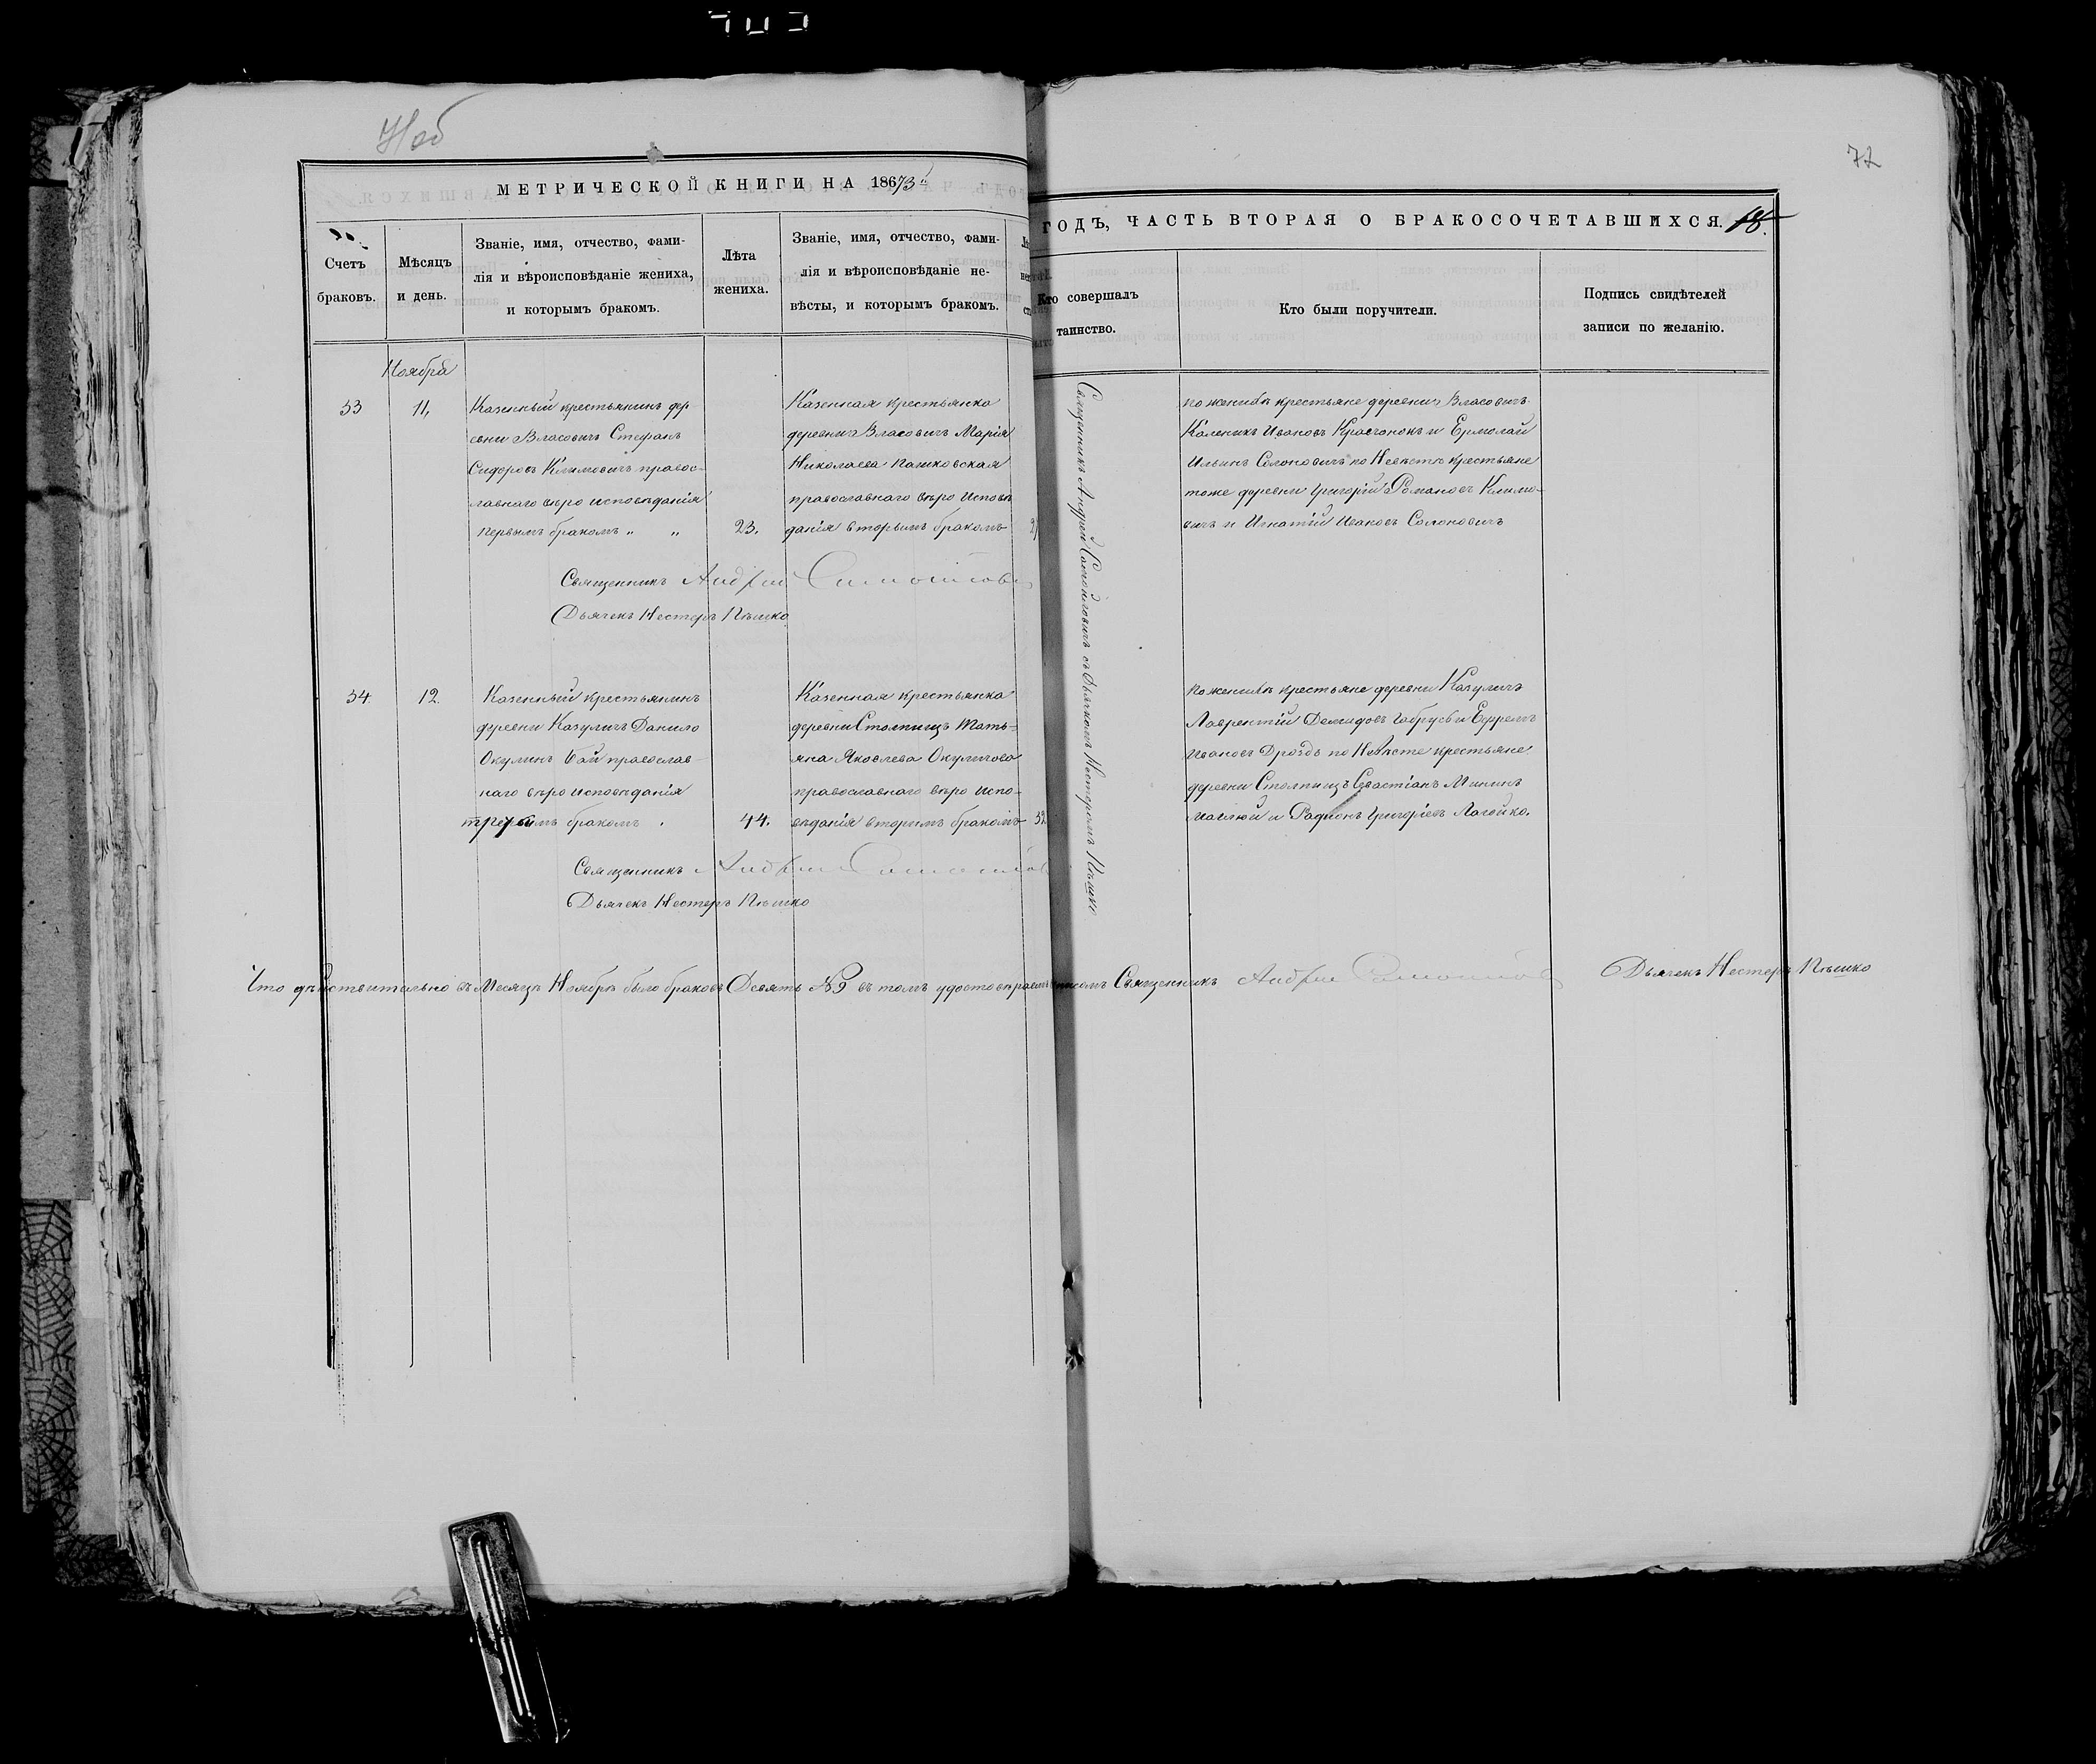 Ноб
72
МЕТРИЧЕСКОЙ КНИГИ НА 1873
ГОДЪ, ЧАСТЬ ВТОРАЯ О БРАКОСОЧЕТАВШИХСЯ. 18.
Счетъ браковъ.
Мѣсяцъ и день.
Званіе, имя, отчество, фами-
лія и вѣроисповѣданіе жениха,
и которымъ бракомъ.
Лѣта
жениха.
Званіе, имя, отчество, фами-
лія и вѣроисповѣданіе не-
вѣсты, и которымъ бракомъ.
Кто совершалъ
таинство.
Кто были поручители.
Подпись свидѣтелей
записи по желанію.
Ноября
33
11,
Казенный крестьянинъ дер
евни Власовичъ Стефанъ
Сидоровъ Климовичъ правос-
лавнаго вѣро исповѣданія
первымъ бракомъ " "
23.
Казенная крестьянка
деревни Власовичъ Марія
Николаева Пашковская
православнаго вѣро исповѣ
данія вторымъ бракомъ
Священникъ Андрей Самойловичъ съ дьячкомъ Нестеромъ Пѣшко
по женихѣ крестьяне деревни Власовичъ
Каленикъ Ивановъ Кравчонокъ и Ермолай
Ильинъ Солоновичъ по Невѣстѣ крестьяне
тоже деревни Григорій Романовъ Климо-
вичъ и Игнатій Ивановъ Солоновичъ
Священникъ Андрей Самойлович
Дьячекъ Нестеръ Пѣшко
34.
12.
Казенный крестьянинъ
деревни Казуличъ Данило
Окулинъ Бай православ-
наго вѣро исповѣданія
третьимъ бракомъ
44.
Казенная крестьянка
деревни Столпищъ Тать-
яна Яковлева Окуличова
православнаго вѣро испо-
вѣданія вторимъ бракомъ
32
по женихѣ крестьяне деревни Казуличъ
Лаврентій Демидовъ Габрусь и Ефремъ
Ивановъ Дроздъ по Невѣсте крестьяне
деревни Столпищъ Севастіанъ Мининъ
и Радионъ Григоріевъ Лагойко.
Священникъ Андрей Самойлов
Дьячекъ Нестеръ Пѣшко
Что дѣйствительно въ Месяцѣ Ноябрѣ было браковъ Девять №9 въ томъ удостовѣряемъ Священникъ Андрей Самойлов Дьячекъ Нестеръ Пѣшко